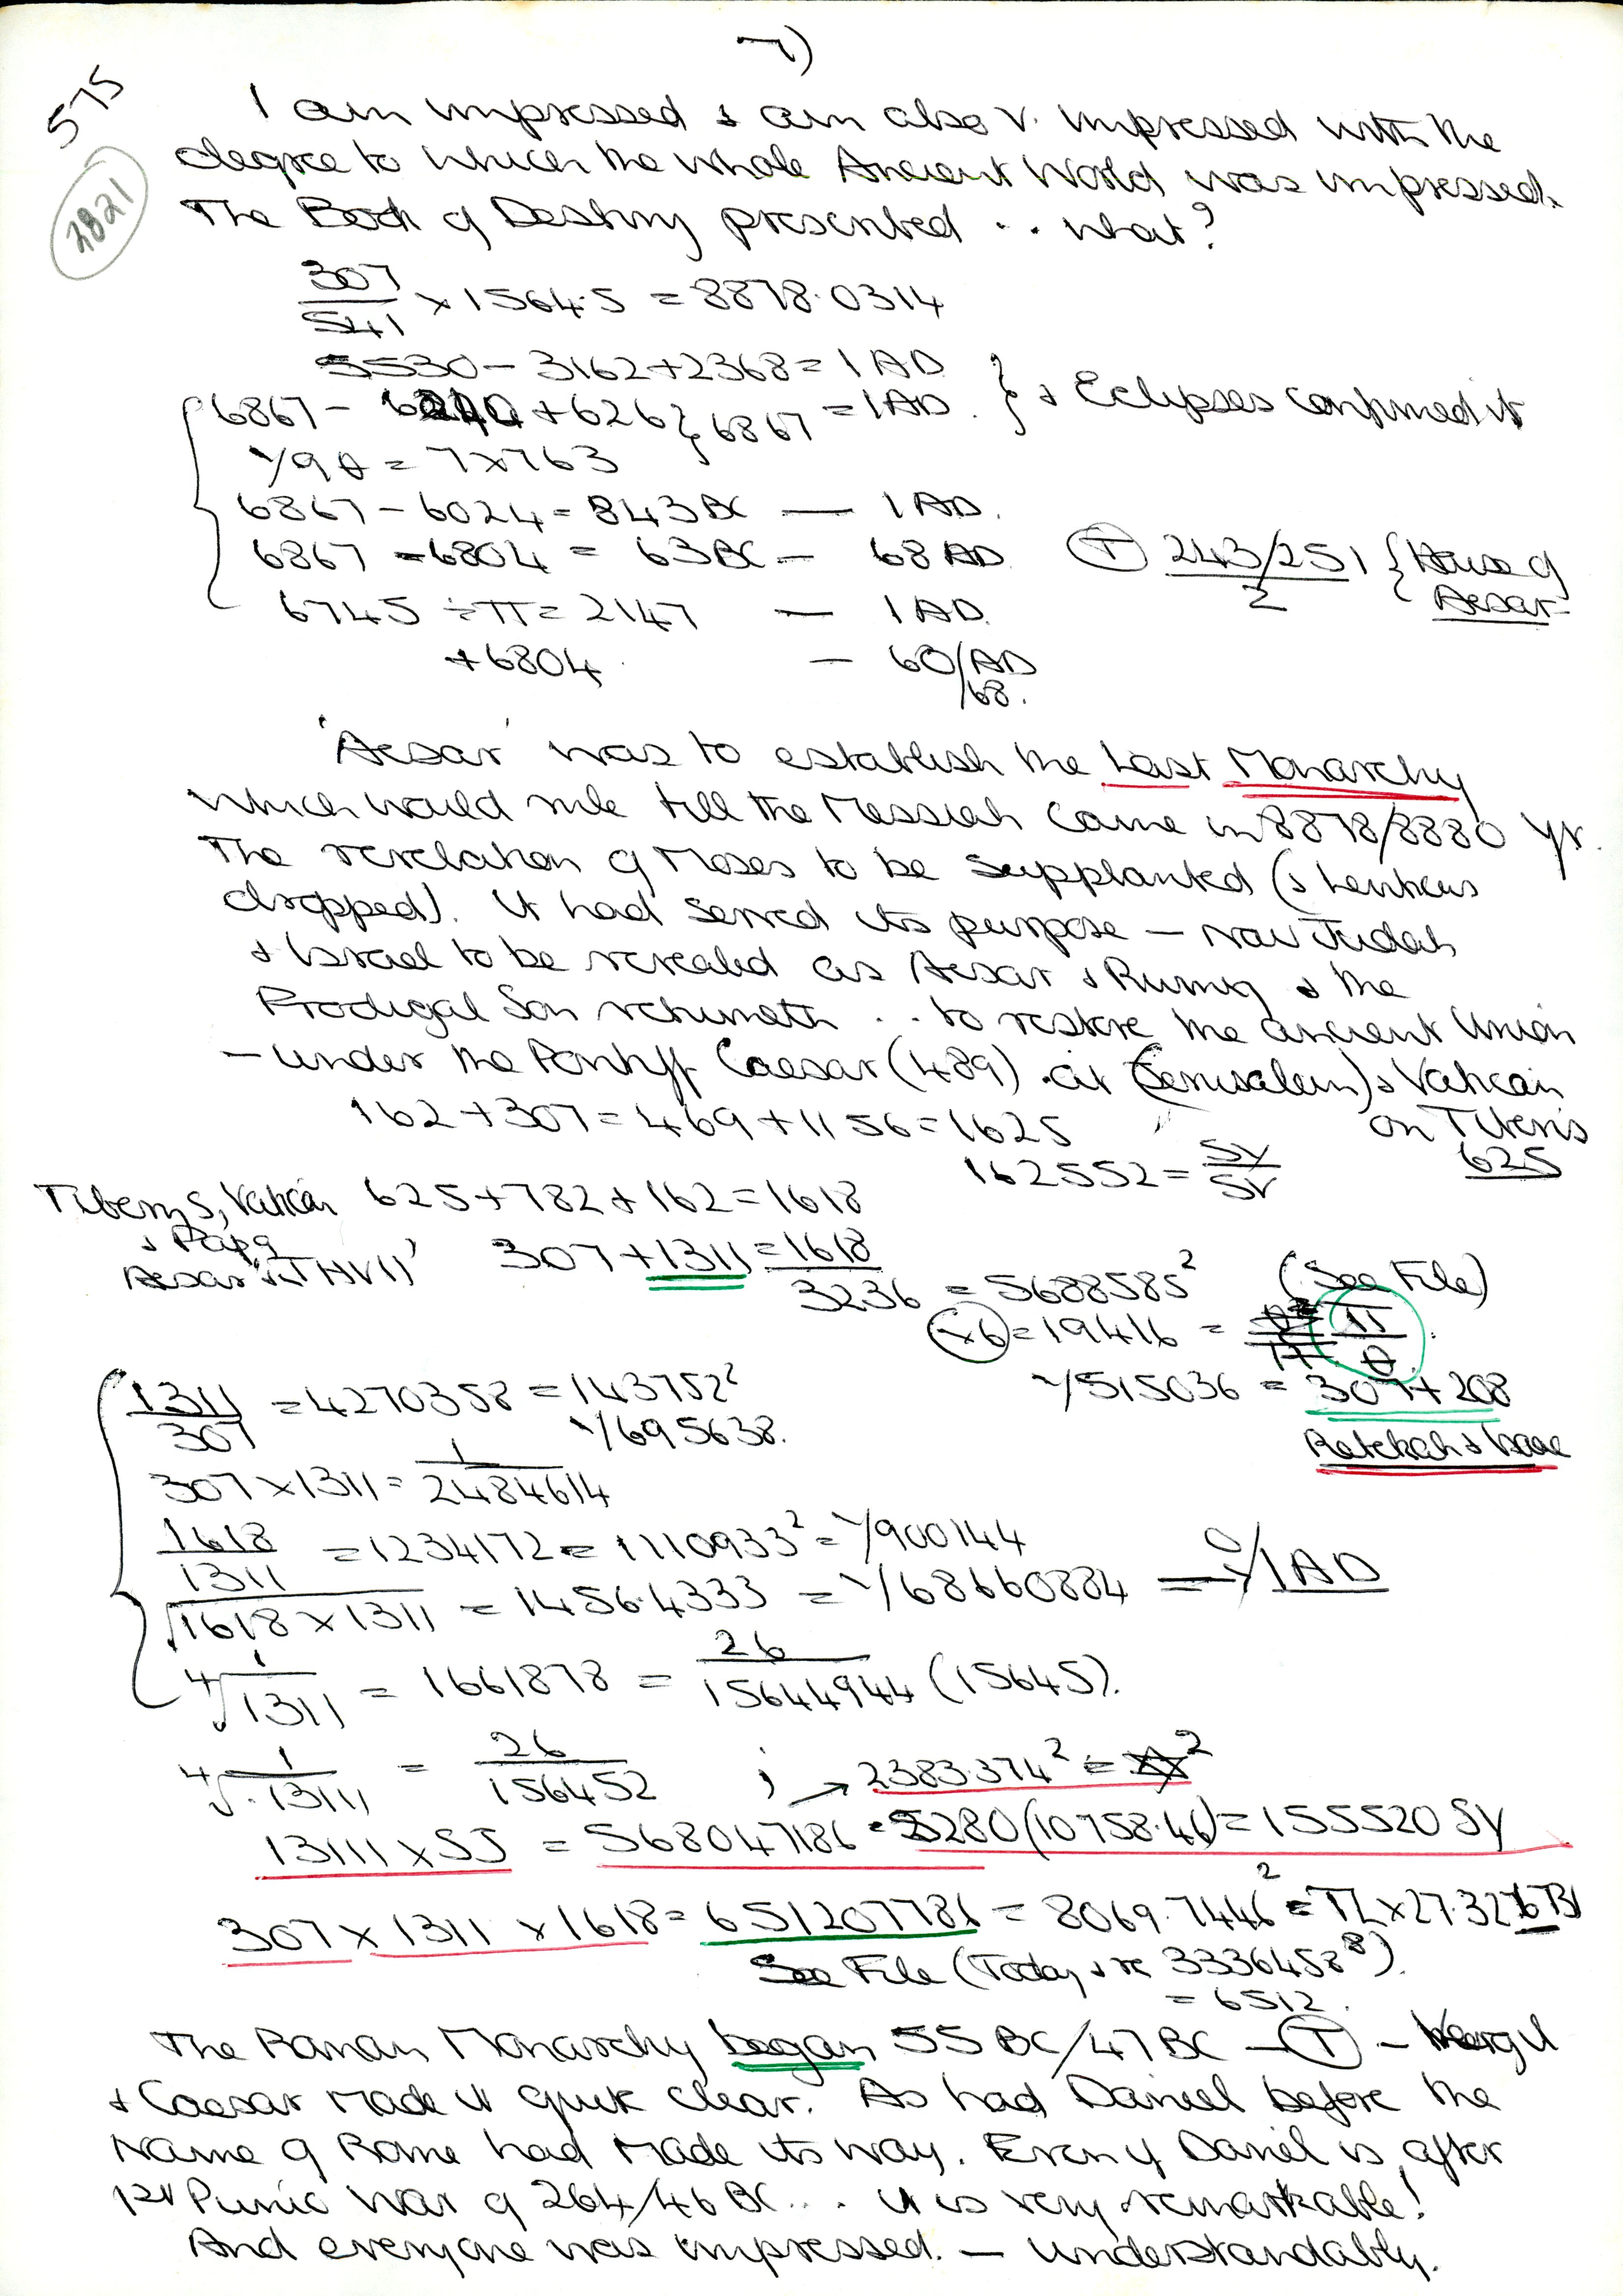 7)
575
2821
I am impressed & am also v. impressed with the
degree to which the whole Ancient World was impressed.
The Book of Destiny presented .. what?
307/541 × 1564.5 = 8878.0314
5530 - 3162 + 2368 = 1 AD
6867 - + 626 } 6867 = 1 AD. } & Eclipses confirmed it
1/9θ = 7 × 763
6867 - 6024 = 843 BC — 1 AD.
6867 - 6804 = 63 BC — 68 AD (T) 243/251 / 2 { House of Aesar
6745 ÷ π = 2147 — 1 AD.
+ 6804 — 60/AD
/68.
'Aesar' was to establish the Last Monarchy
which would rule till the Messiah came in 8878/8880 yr.
The revelation of Moses to be supplanted (& Leviticus
dropped). It had served its purpose — now Judah
& Israel to be revealed as Aesar & Rumig & the
Prodigal Son returneth .. to restore the ancient Union
— under the Pontiff Caesar (489) at (Jerusalem) & Vatican
on Tiberis
162 + 307 = 469 + 1156 = 1625
162552 = SY/SV 625
Tiberys, Vatican 625 + 782 + 162 = 1618
& Papa
Aesar 307 + 1311 = 1618
3236 = 5688585² (See File)
(×6) = 19416 = π/θ
1/515036 = 307 + 208
Rebekah & Isaac
1311/307 = 4270358 = 143752²
1/695638.
307 × 1311 = 1/2484614
1618/1311 = 1234172 = 1110933² = 1/900144
√1618 × 1311 = 1456.4333 = 1/68660884 — 0/1 AD
⁴√1/1311 = 1661878 = 26/15644944 (15645).
⁴√1/.13111 = 26/156452 ; → 2383.374² = ☆²
13111 × SJ = 568047186 = 5280 (10758.46) = 155520 SY
307 × 1311 × 1618 = 651207786 = 8069.7446² = TL × 27.321673
See File (Today & re 3336458⁸).
= 6512.
The Roman Monarchy began 55 BC/47 BC — (T) — Vergil
& Caesar made it quite clear. As had Daniel before the
Name of Rome had made its way. Even if Daniel is after
1st Punic War of 264/46 BC ... it is very remarkable!
And everyone was impressed. — understandably.